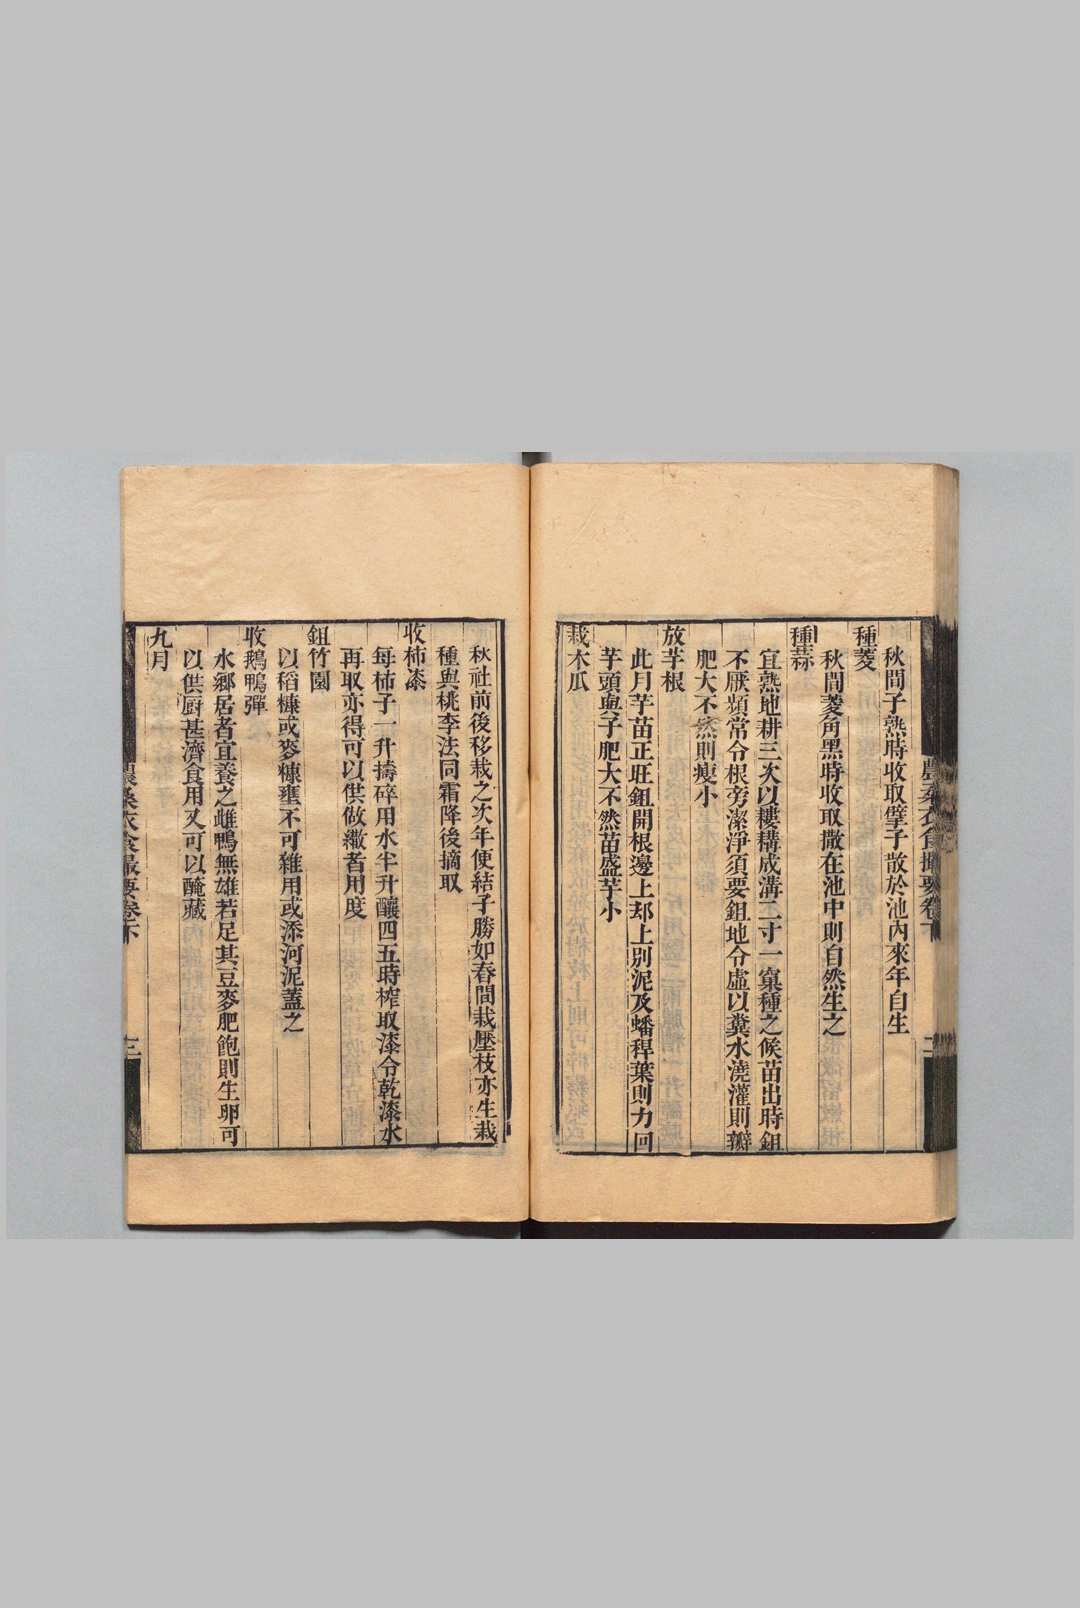 秋間子熟時收取擘子散於池內來年自生
種菱
秋間菱角黑時收取撒在池中則自然生之
種蒜
宜熟地耕三次以耬耩成溝二寸一窠種之候苗出時鉏
不厭頻常令根旁潔淨須要鉏地令虛以糞水澆灌則瓣
肥大不然則瘦小
放芋根
此月芋苗正旺鉏開根邊上却上別泥及蟠稈葉則力回
芋頭與子肥大不然苗盛芋小
栽木瓜
秋社前後移栽之次年便結子勝如春間栽壓枝亦生栽
種與桃李法同霜降後摘取
收柿漆
每柿子一升擣碎用水半升釀四五時榨取漆令乾漆水
再取亦得可以供做繖者用度
鉏竹園
以稻糠或麥糠壅不可雜用或添河泥蓋之
收鵝鴨彈
水鄉居者宜養之雌鴨無雄若足其豆麥肥飽則生卵可
以供厨甚濟食用又可以醃藏
九月
農桑衣食撮要卷下
三